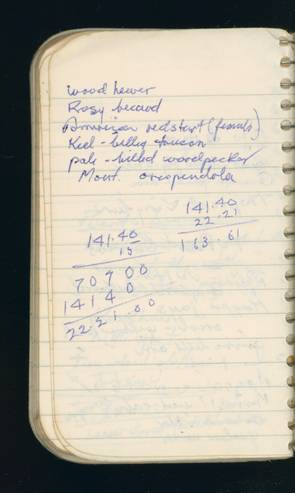 wood hewer
Rosy becard
American redstart (female)
Kiel-billig toucan
pale-billed woodpecker
Mont. oropendola
141.40
15
70700
14140
22.21.00
141.40
22.21
163.61